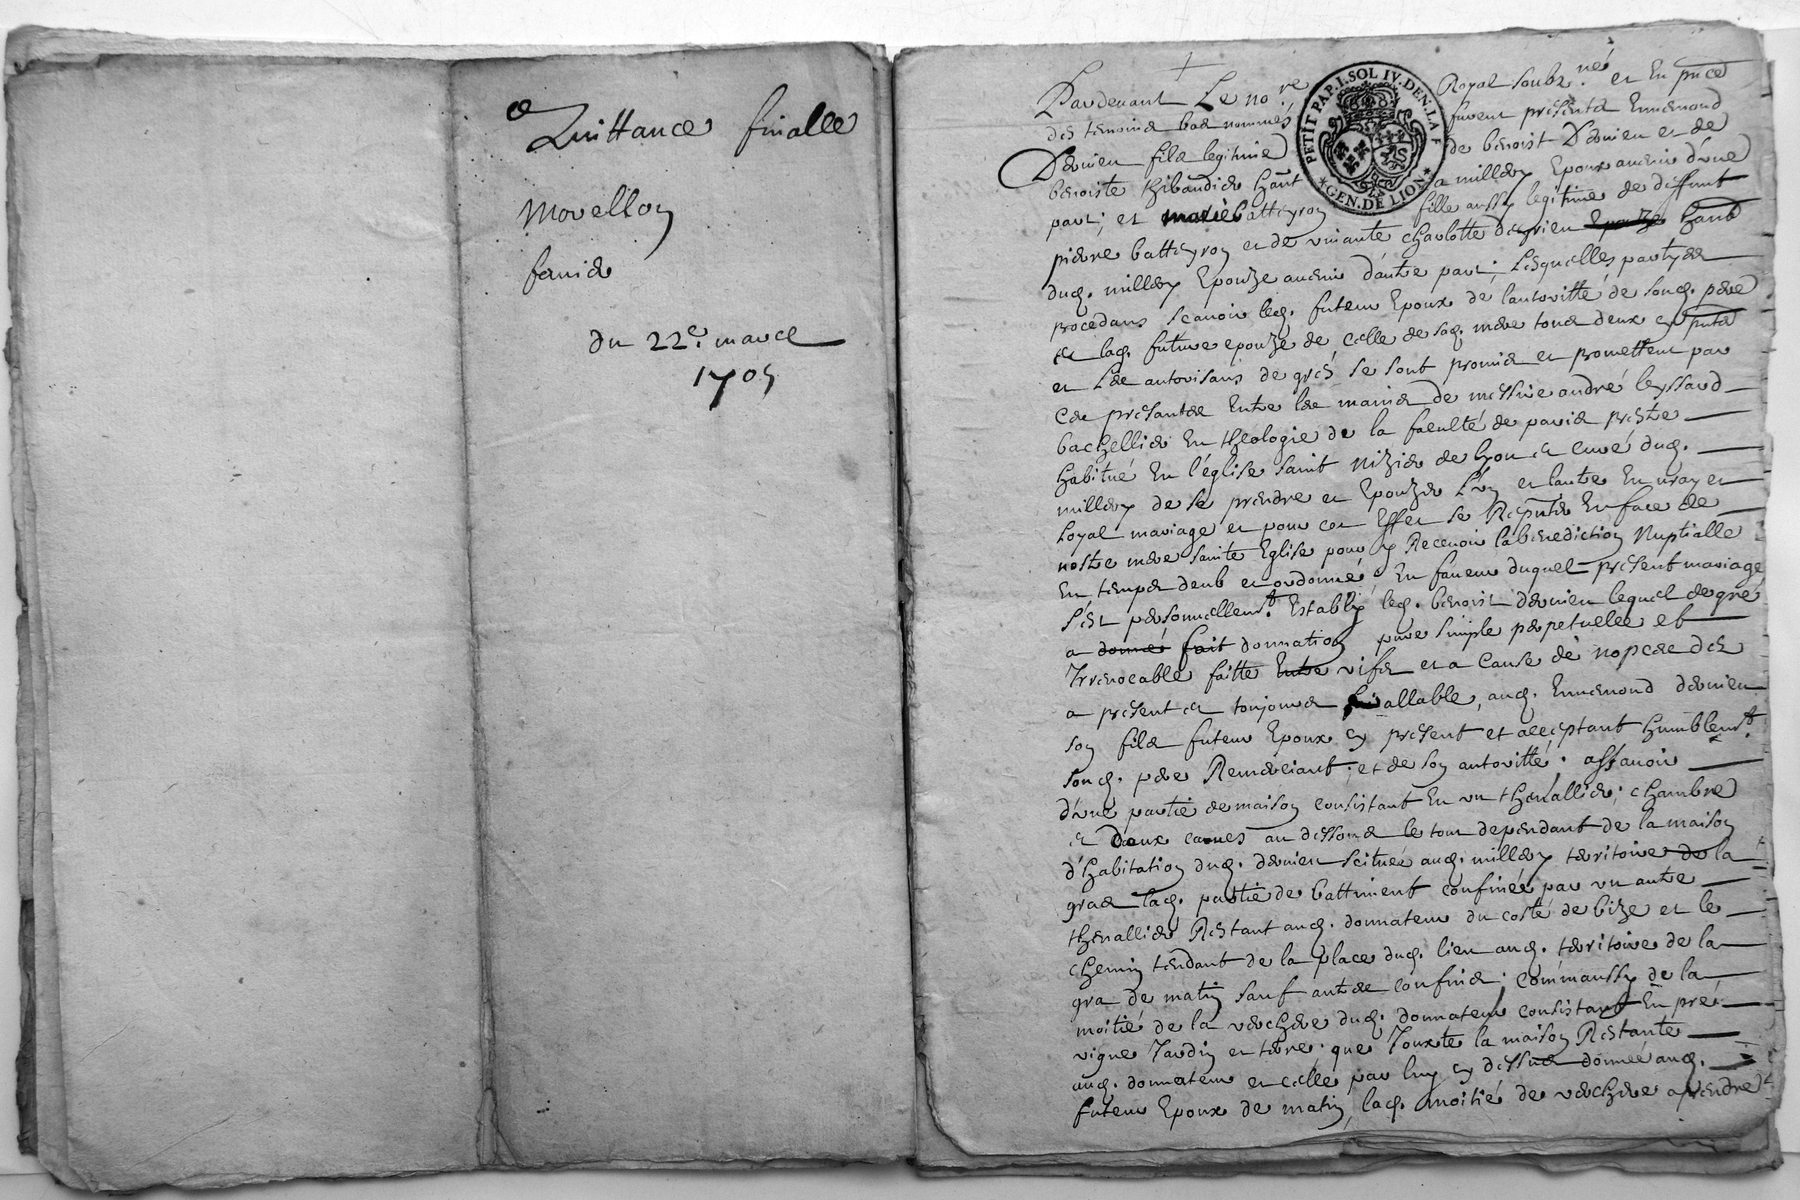 Quittance finalle
Morellon
fournier
du 22e. mars
1705
PETIT PAP. I. SOL IV. DEN. LA F
GEN. DE LION
Pardevant Le no.re Royal soubz.né et En pnce
des temoins bas nommés furent presents Ennemond
Dernieu fils legitime de benoist Dernieu et de
benoiste thibaudier hānt a millery Epoux avenir d'une
part; et marie batteyron fille aussy legitime de deffunt
pierre batteyron et de vivante charlotte hānte
dud. millery Epouze avenir d'autre part; Lesquelles partyes
procedans scavoir led. futeur Epoux de l'autoritté de sond. pere
et lad. future epouze de celle de sad. mere tous deux cy pnts
et Les autorisans de grés se sont promis et promettent par
ces presantes Entre les mains de messire andré leyssard
bachellier En theologie de la faculté de paris prestre
habitué En l'église saint Nizier de lyon et curé dud.
millery de se prendre et Epouzer L'un et lautre En vray et
Loyal mariage et pour cet Effet se Repnter En face de
nostre mere sainte Eglise pour y Recevoir la benediction Nuptialle
En temps deub et ordonné, En faveur duquel present mariage
s'est personnellemt. Establÿ led. benoist dernieu lequel de gré
a donné fait donnation pure simple perpetuelle et
Irrevocable faitte Entre vifs et a Cause de nopces des
a present et toujours vallable, aud. Ennemond dernieu
son fils futeur Epoux cy present et acceptant humblemt.
sond. pere Remerciant; et de son autoritté; assavoir
d'une partie de maison consistant En un chenallier; chambre
et deux caves au dessous le tout dependant de la maison
d'habitation dud. dernieu scituée aud. millery territoire de la
gras lad. partie de battiment confinée par un autre
chenallier Restant aud. donnateur du costé de bize et le
chemin tendant de la place dud. lieu aud. territoire de la
gra de matin sauf autres confins; comm'aussy de la
moitié de la verchere dud. donnateur consistant En pré
vigne Jardin et terre que Jouxte la maison Restante
aud. donnateur et celle par luy cy dessus donnée aud.
futeur Epoux de matin, lad. moitié de verchere a prendre